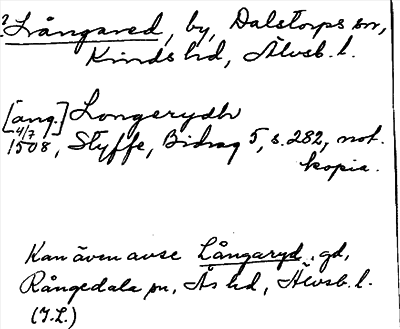 ? Långared, by, Dalstorps sn,
Kinds hd, Älvsb. l.
[ang.] Longerydh
4/7 1508, Styffe, Bidrag 5, s. 282, not.
kopia.
Kan även avse Långaryd, gd,
Rångedala sn, Ås hd, Älvsb. l.
(I.L.)